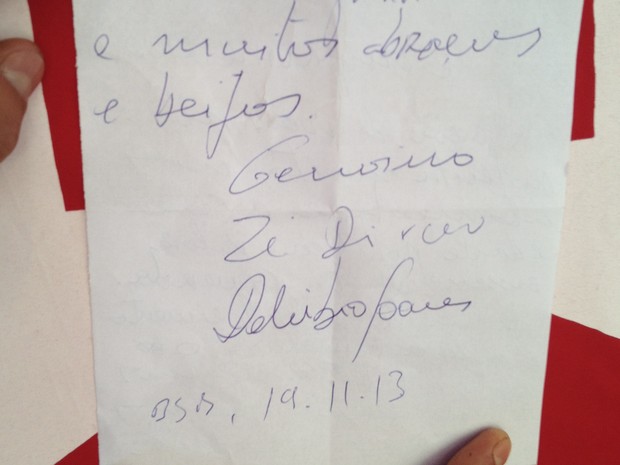 e muitos abraços
e beijos.
Genoino
Zé Dirceu
Delúbio Soares
BSB, 19.11.13